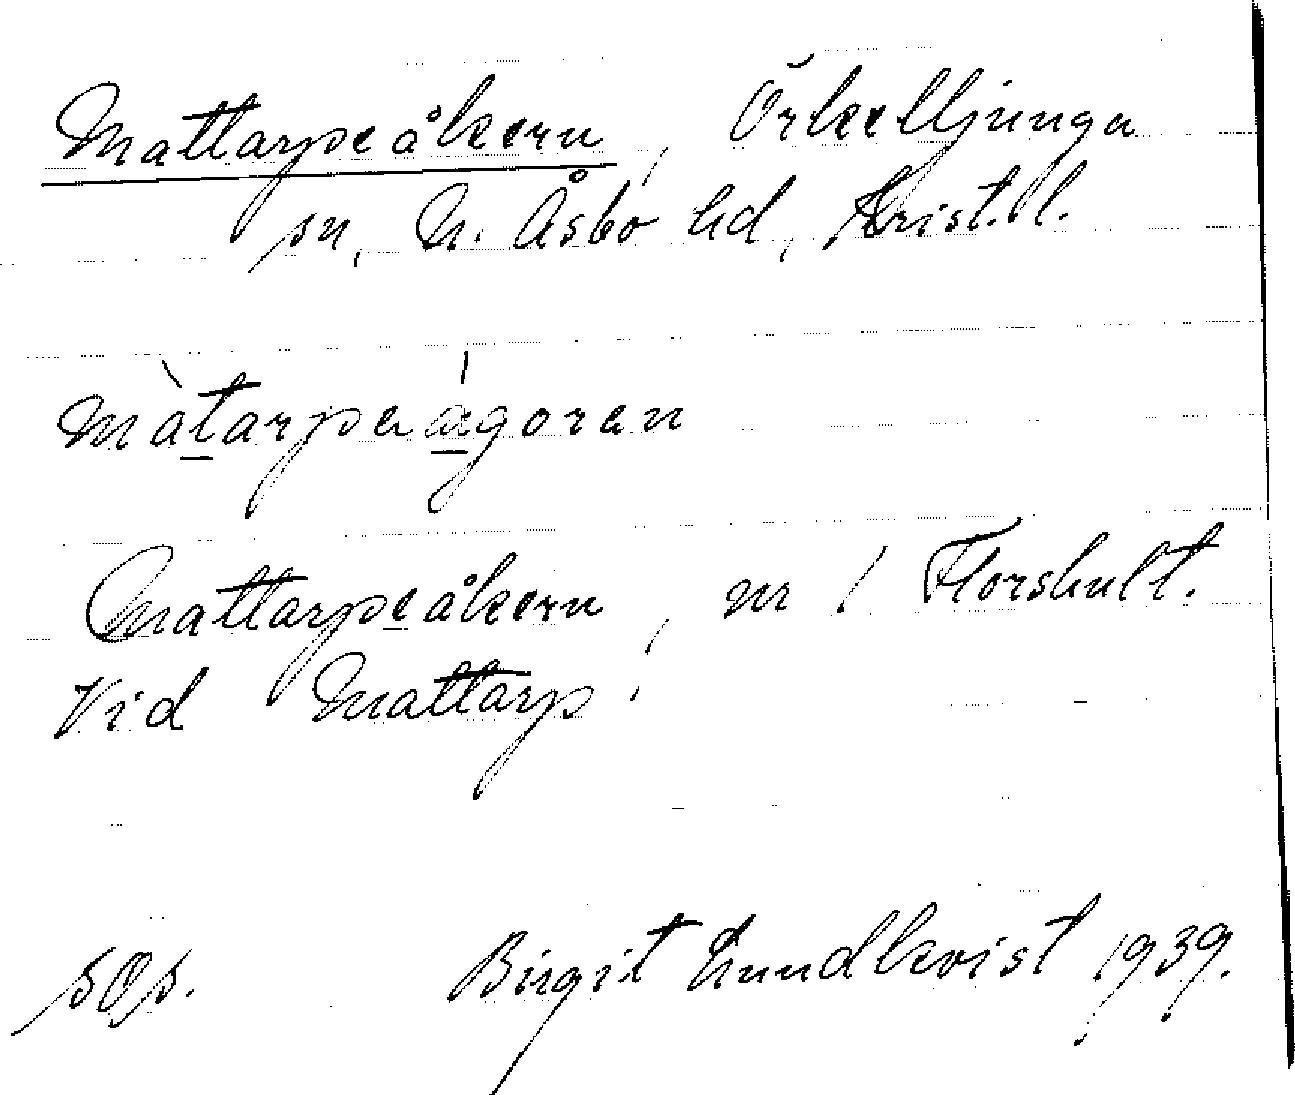 Mattarpeåkern, Örkelljunga
sn, N. Åsbo hd, Krist. l.
màtarpaágoren
Mattarpeåkern, nr 1 Florshult.
Vid Mattarp.
sOs. Birgit Lundkvist 1939.